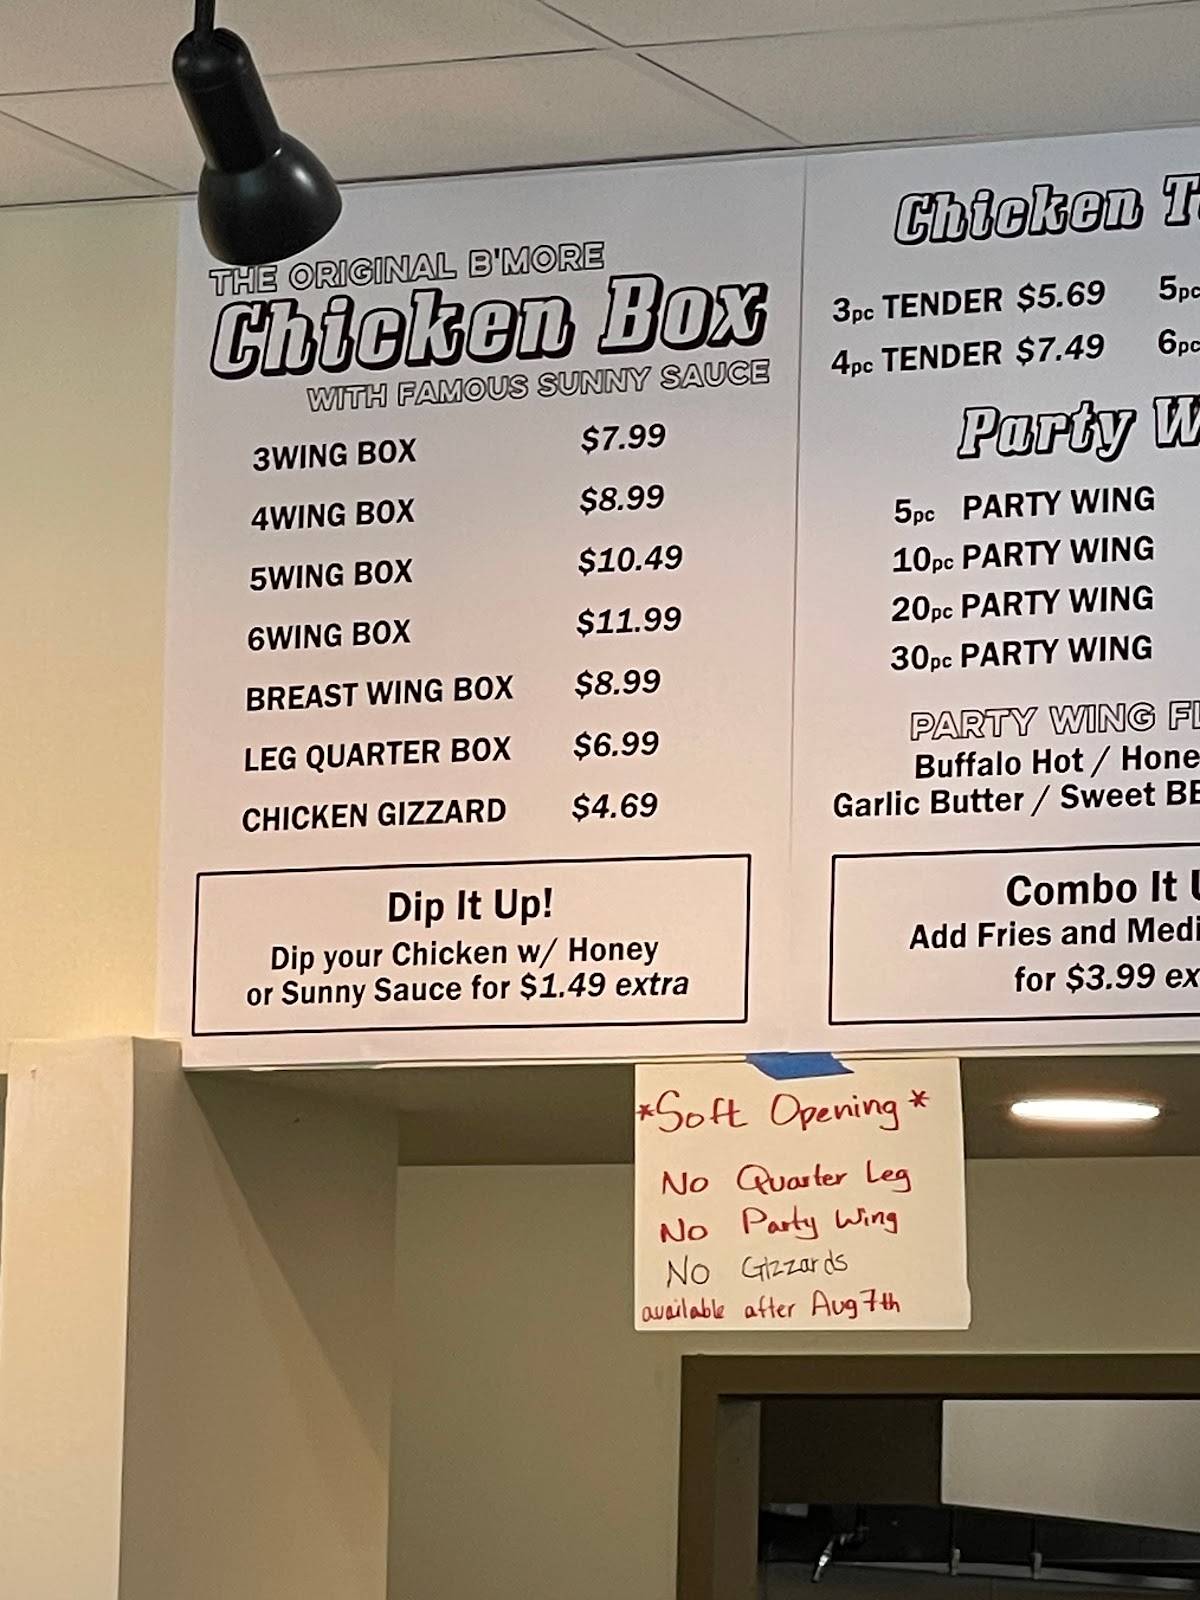 THE ORIGINAL B'MORE
Chicken Box
WITH FAMOUS SUNNY SAUCE
3WING BOX $7.99
4WING BOX $8.99
5WING BOX $10.49
6WING BOX $11.99
BREAST WING BOX $8.99
LEG QUARTER BOX $6.99
CHICKEN GIZZARD $4.69
Dip It Up!
Dip your Chicken w/ Honey
or Sunny Sauce for $1.49 extra
Chicken
3pc TENDER $5.69 5pc
4pc TENDER $7.49 6pc
Party
5pc PARTY WING
10pc PARTY WING
20pc PARTY WING
30pc PARTY WING
PARTY WING
Buffalo Hot / Hone
Garlic Butter / Sweet
Combo It
Add Fries and Medi
for $3.99 ex
*Soft Opening*
No Quarter Leg
No Party Wing
No Gizzards
available after Aug 7th